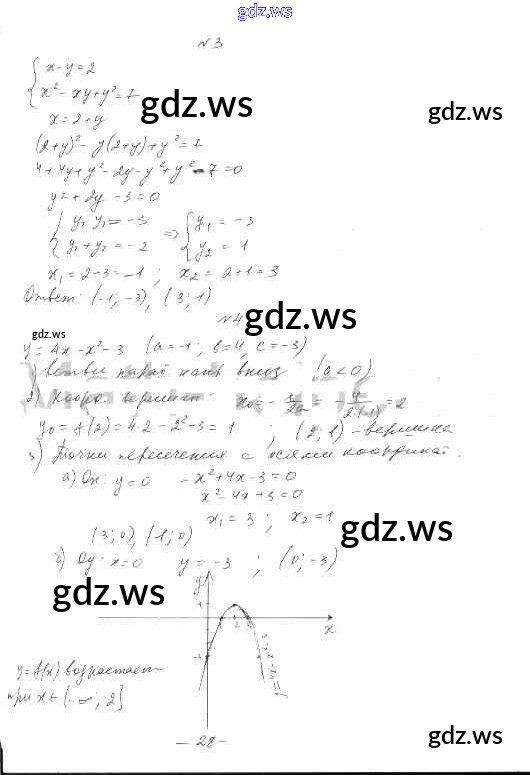 gdz.ws
№3
{ x-y=2
x²-xy+y²=7
gdz.ws
gdz.ws
x=2+y
(2+y)²-y(2+y)+y²=7
4+4y+y²-2y-y²+y²-7=0
y²+2y-3=0
{ y₁·y₂=-3 => { y₁=-3
y₁+y₂=-2 y₂=1
x₁=2-3=-1; x₂=2+1=3
Ответ: (-1;-3), (3;1)
gdz.ws
№4
gdz.ws
y=4x-x²-3 (a=-1; b=4, c=-3)
1) ветви вниз (a<0)
2) вершины: x₀=-b/2a=-4/2·(-1)=2
y₀=f(2)=4·2-2²-3=1; (2;1)-вершина
3) Точки пересечения с осями координат:
а) Ox: y=0 -x²+4x-3=0
x²-4x+3=0
x₁=3; x₂=1
gdz.ws
(3;0), (1;0)
б) Oy: x=0 y=-3; (0;-3)
gdz.ws
y
1
1 2 3
x
y=f(x) возрастает
при x∈(-∞; 2]
gdz.ws
-28-